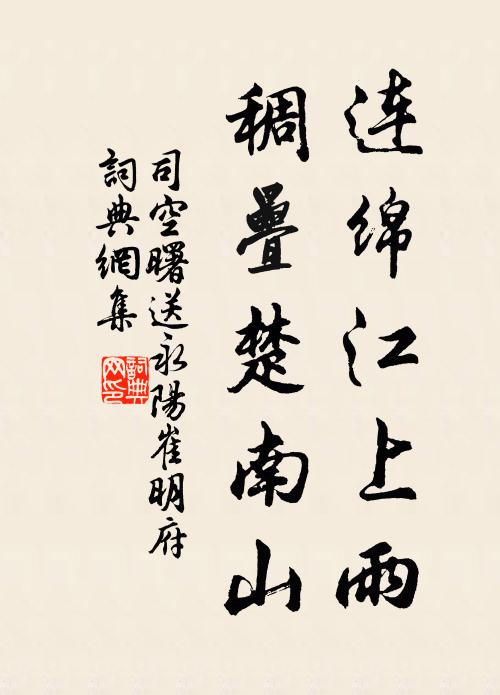 连绵江上雨
稠疊楚南山
司空曙送永陽崔明府
詞典網集
詞典
网印